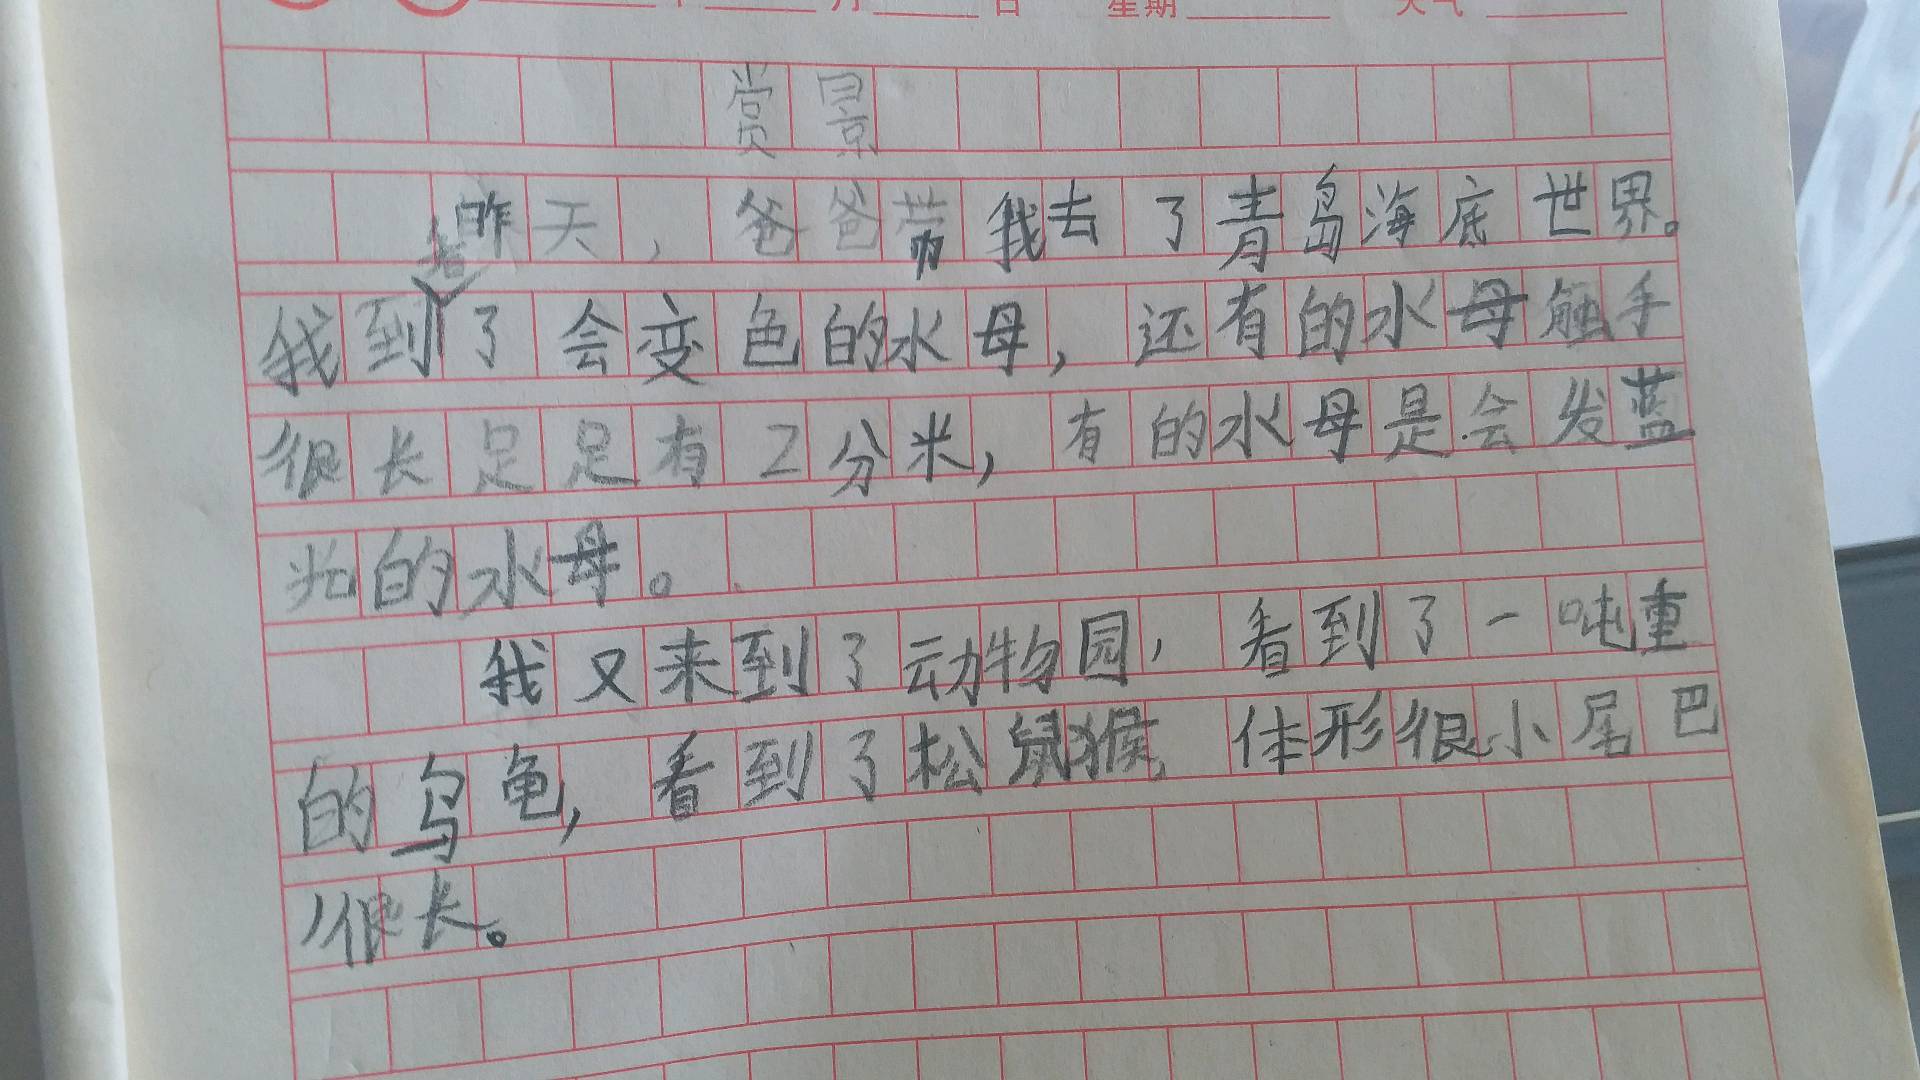 月 日 星期 天气
赏景
昨天，爸爸带我去了青岛海底世界。
我看到了会变色的水母，还有的水母触手
很长足足有2分米，有的水母是会发蓝
光的水母。
我又来到了动物园，看到了一吨重
的乌龟，看到了松鼠猴，体形很小尾巴
很长。